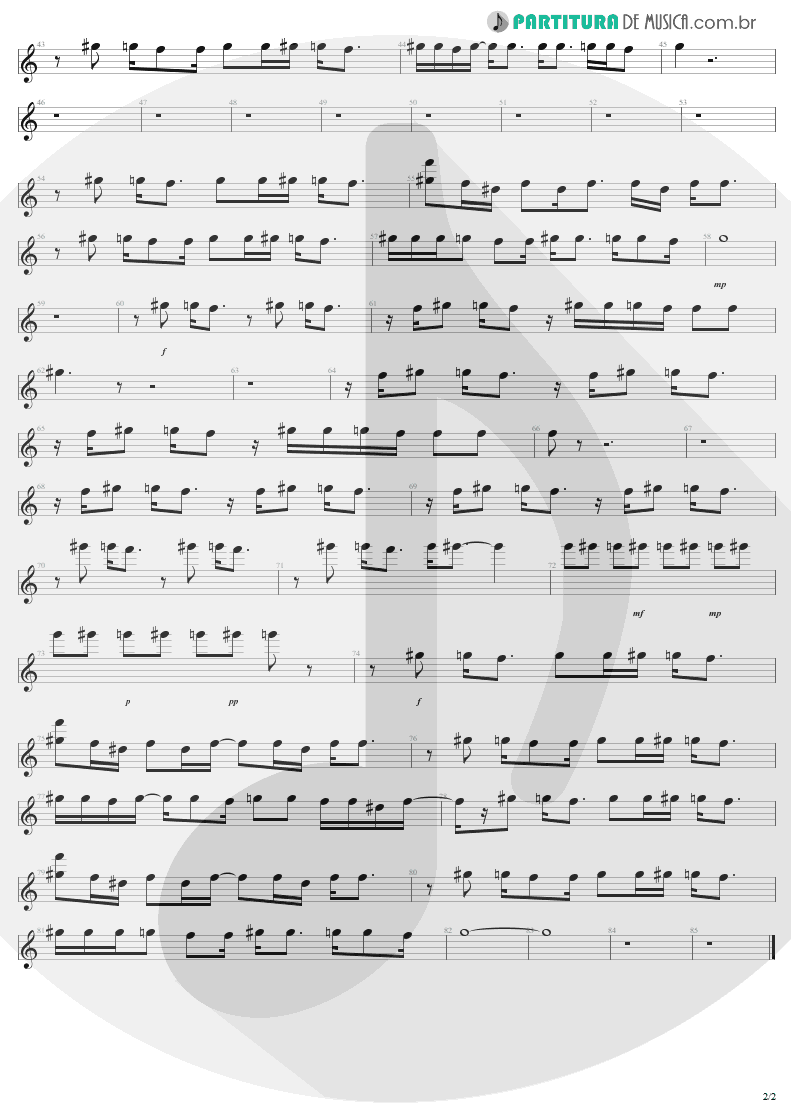 PARTITURA DE MUSICA.com.br
43 44 45
46 47 48 49 50 51 52 53
54 55
56 57 58
mp
59 60 61
f
62 63 64
65 66 67
68 69
70 71 72
mf mp
73 74
p pp f
75 76
77 78
79 80
81 82 83 84 85
2/2